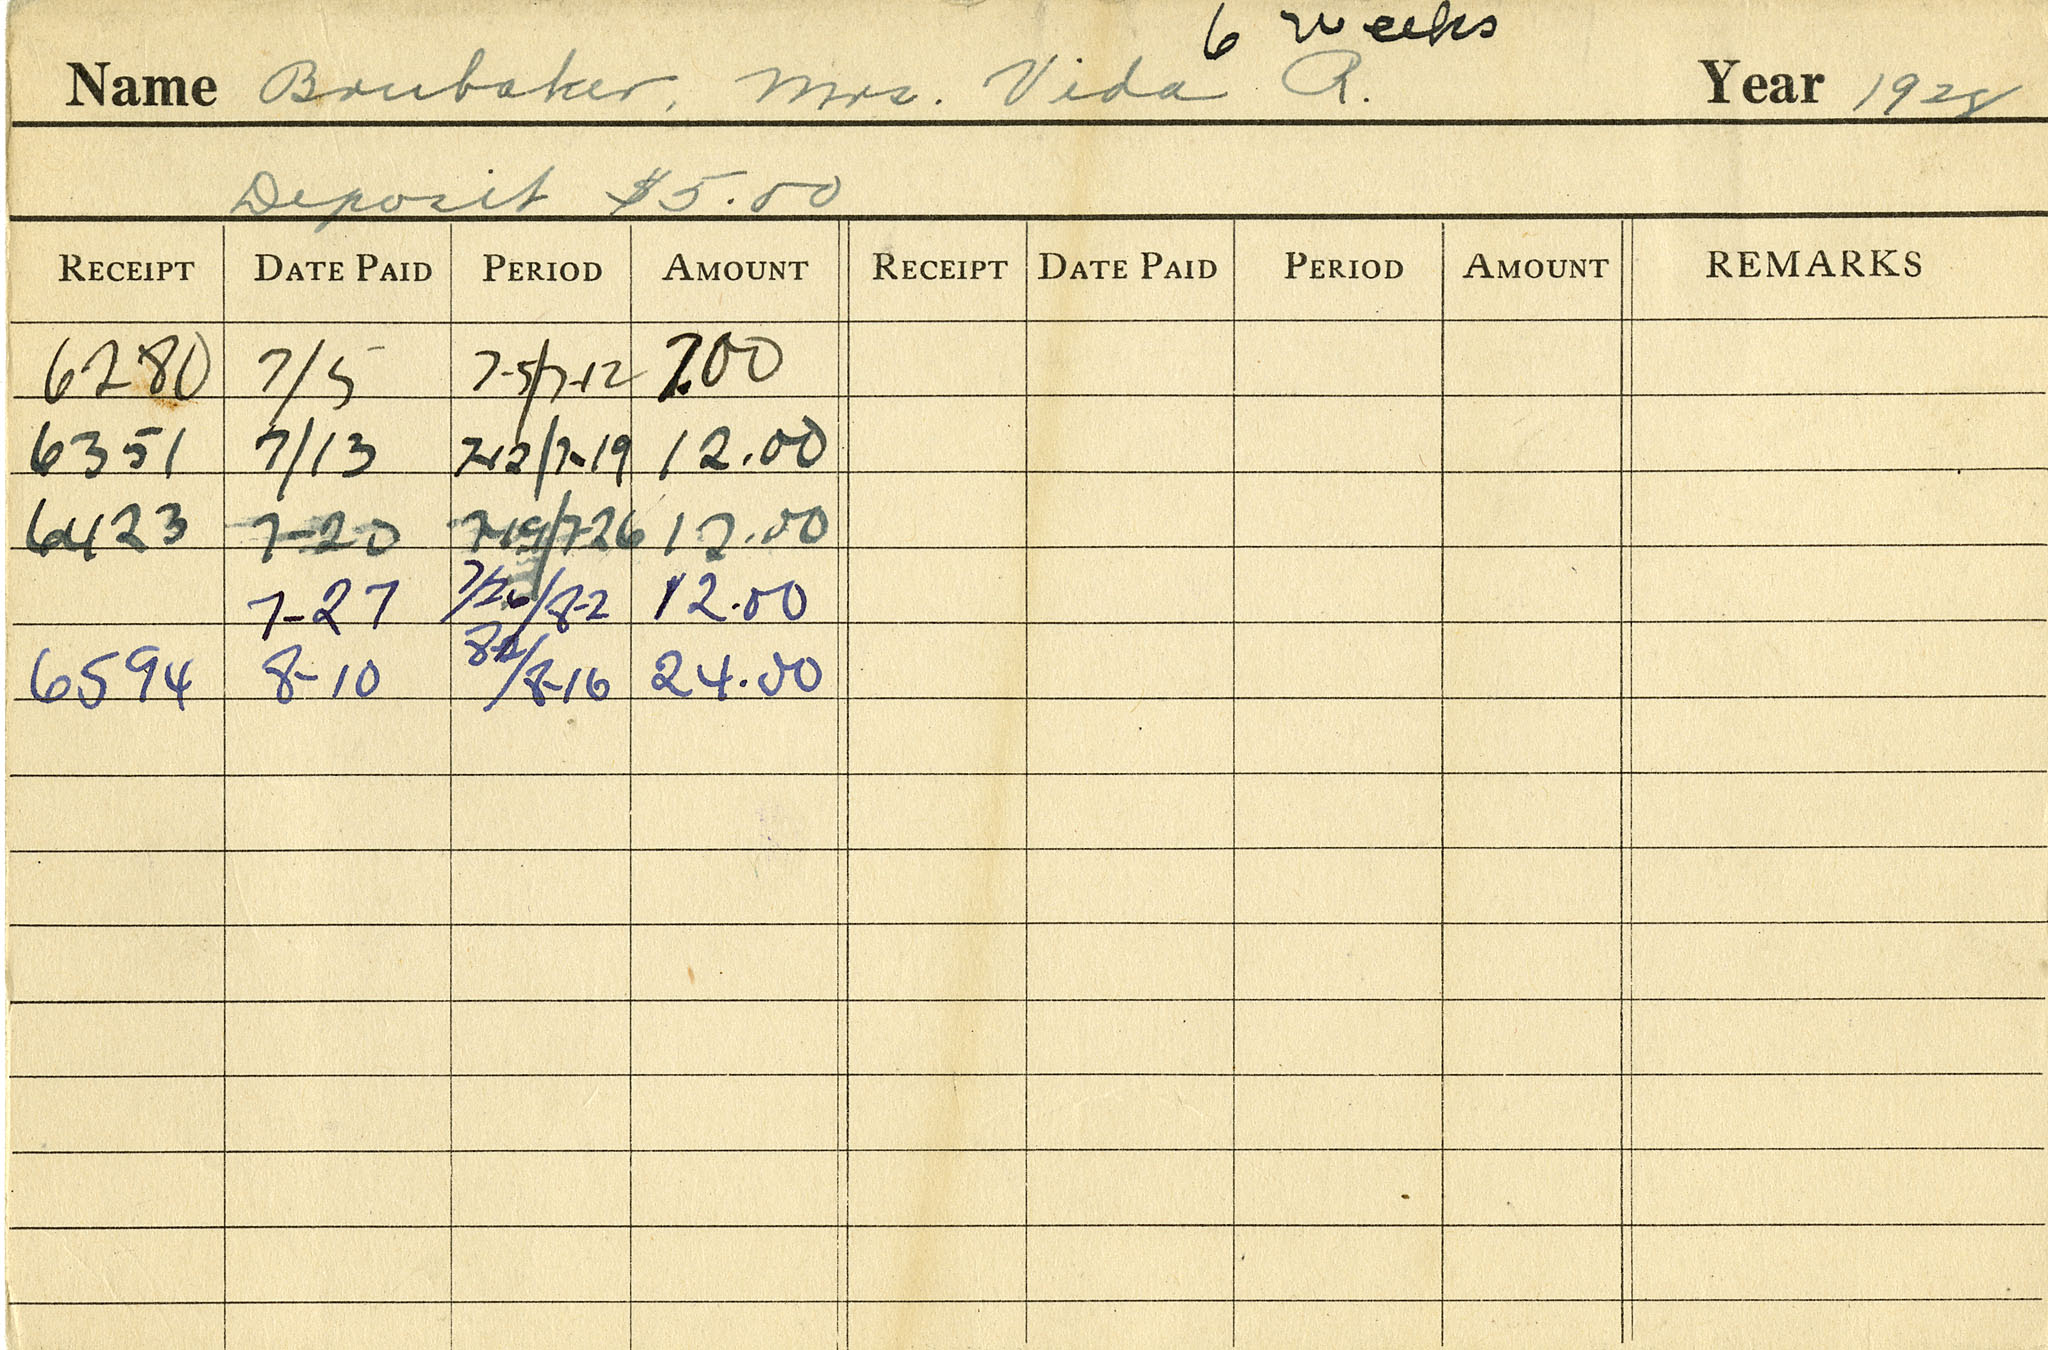 6 weeks
Name Brubaker, Mrs. Vida R. Year 1928
Deposit $5.00
RECEIPT DATE PAID PERIOD AMOUNT RECEIPT DATE PAID PERIOD AMOUNT REMARKS
6280 7/5 7-5/7-12 7.00
6351 7/13 7-12/7-19 12.00
6423 7-20 7-19/7-26 12.00
7-27 7/26/8-2 12.00
6594 8-10 8-2/8-16 24.00